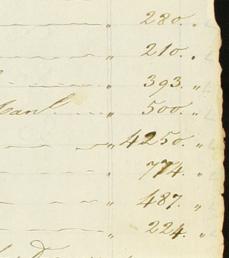 " 280. "
" 210. "
" 393. "
" 500. "
" 4250. "
" 774. "
" 487. "
" 224. "